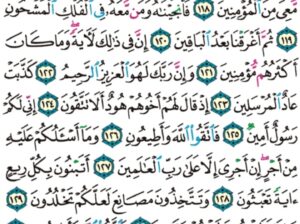 مَّعِىَ مِنَ ٱلْمُؤْمِنِينَ ١١٨ فَأَنجَيْنَٰهُ وَمَن مَّعَهُۥ فِى ٱلْفُلْكِ ٱلْمَشْحُونِ
١١٩ ثُمَّ أَغْرَقْنَا بَعْدُ ٱلْبَاقِينَ ١٢٠ إِنَّ فِى ذَٰلِكَ لَءَايَةً وَمَا كَانَ
أَكْثَرُهُم مُّؤْمِنِينَ ١٢١ وَإِنَّ رَبَّكَ لَهُوَ ٱلْعَزِيزُ ٱلرَّحِيمُ ١٢٢ كَذَّبَتْ
عَادٌ ٱلْمُرْسَلِينَ ١٢٣ إِذْ قَالَ لَهُمْ أَخُوهُمْ هُودٌ أَلَا تَتَّقُونَ ١٢٤ إِنِّى لَكُمْ
رَسُولٌ أَمِينٌ ١٢٥ فَٱتَّقُوا۟ ٱللَّهَ وَأَطِيعُونِ ١٢٦ وَمَآ أَسْـَٔلُكُمْ عَلَيْهِ
مِنْ أَجْرٍ إِنْ أَجْرِىَ إِلَّا عَلَىٰ رَبِّ ٱلْعَٰلَمِينَ ١٢٧ أَتَبْنُونَ بِكُلِّ رِيعٍ
ءَايَةً تَعْبَثُونَ ١٢٨ وَتَتَّخِذُونَ مَصَانِعَ لَعَلَّكُمْ تَخْلُدُونَ ١٢٩